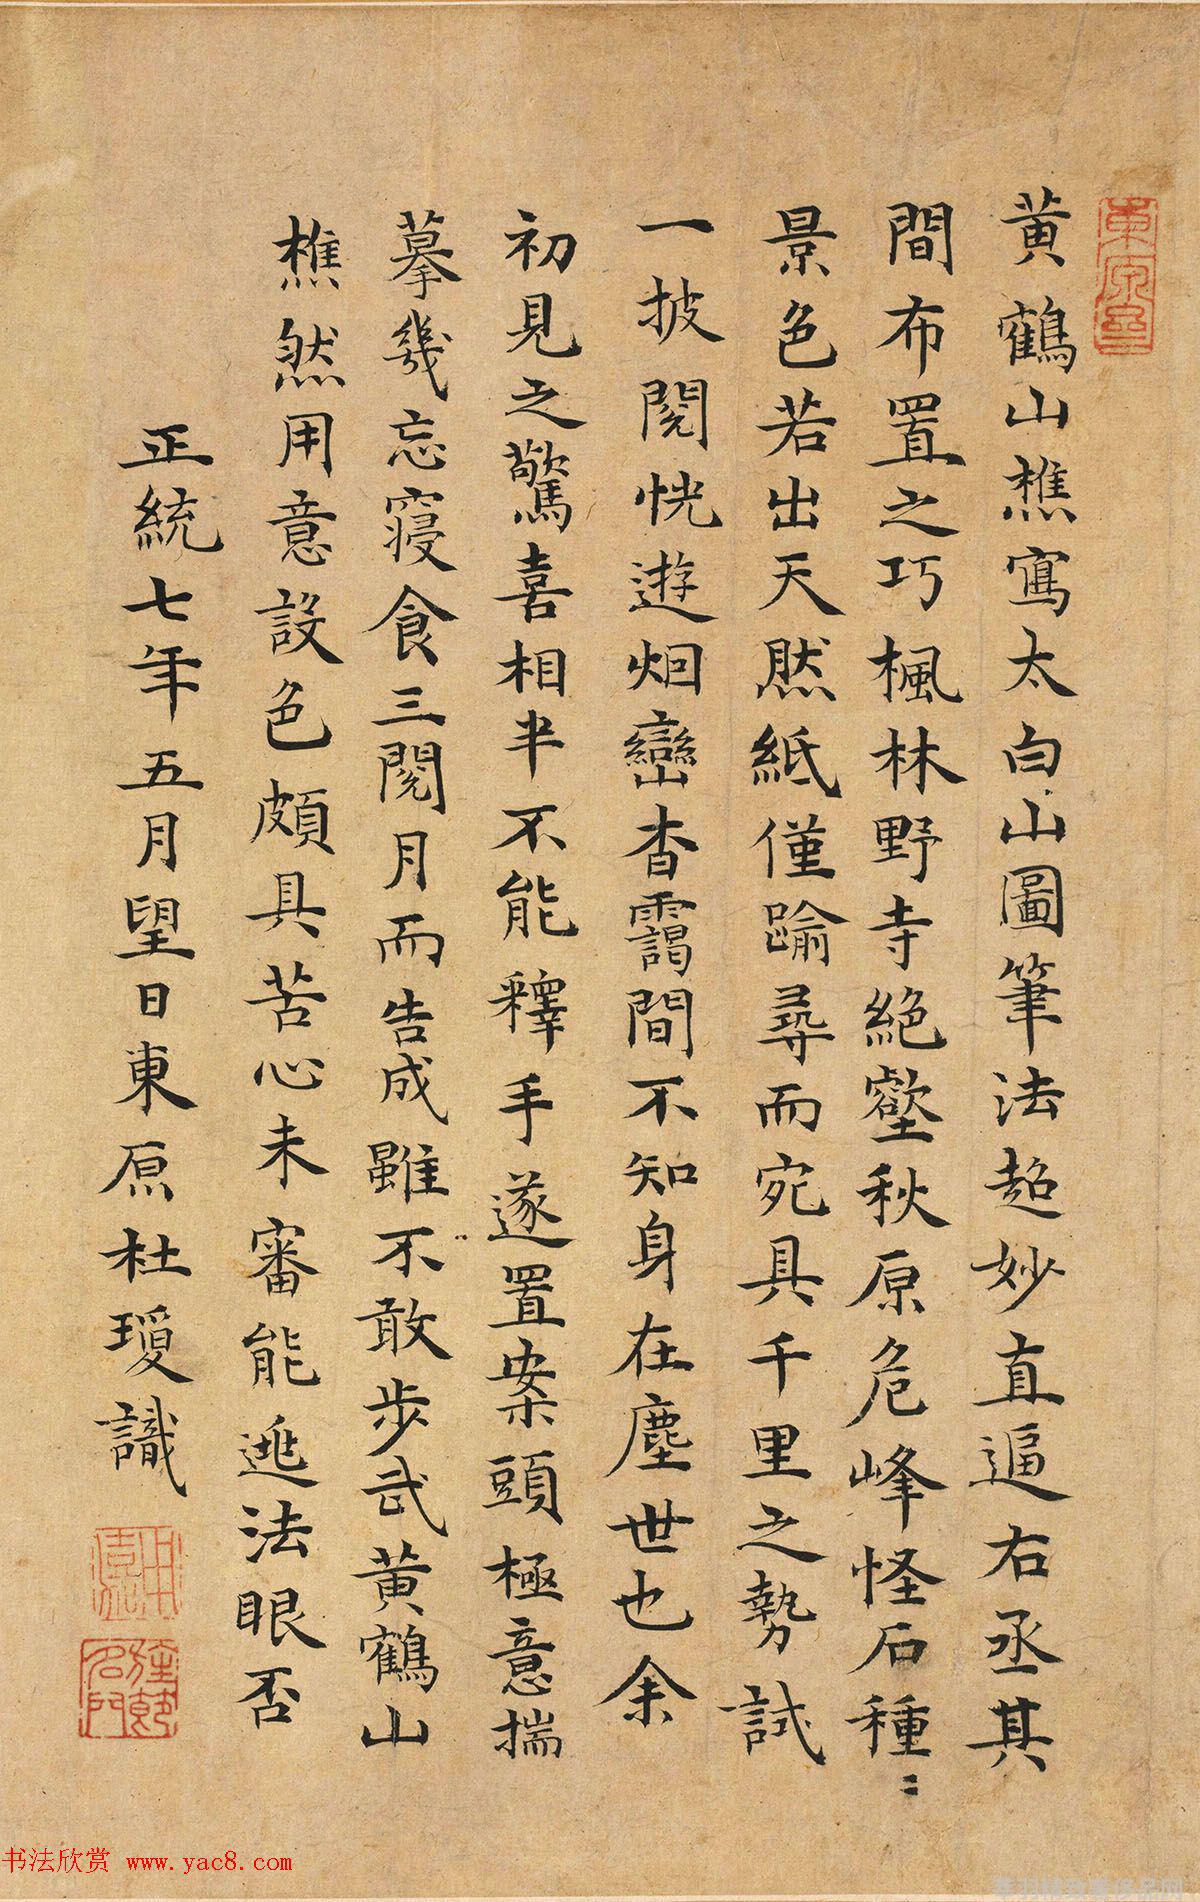 黄鶴山樵寫太白山圖筆法超妙直逼右丞其
間布置之巧楓林野寺絕壑秋原危峰怪石種〻
景色若出天然紙僅踰尋而宛具千里之勢試
一披閱恍遊烟巒杳靄間不知身在塵世也余
初見之驚喜相半不能釋手遂置案頭極意揣
摹幾忘寢食三閱月而告成雖不敢步武黄鶴山
樵然用意設色頗具苦心未審能逃法眼否
正統七年五月望日東原杜瓊識
书法欣赏 www.yac8.com